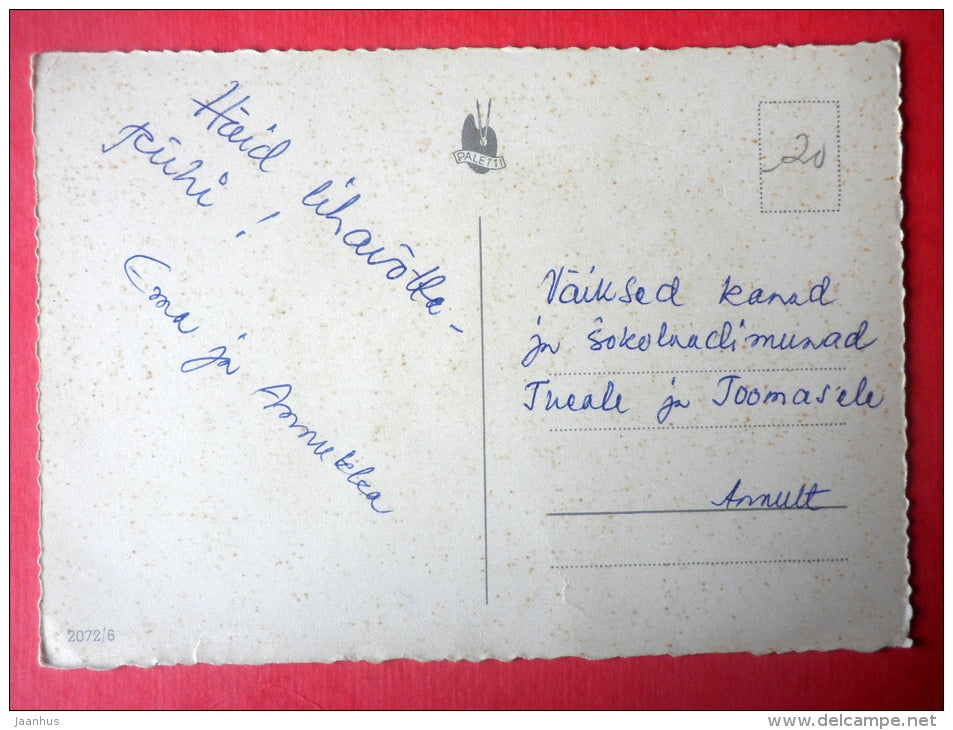 Häid lihavõtte-
pühi!
Ema ja Annukka
PALETTI
20
Väiksed kanad
ja šokolaadimunad
Tiieale ja Toomas'ele
Annult
2072/6
Jaanhus
www.delcampe.net